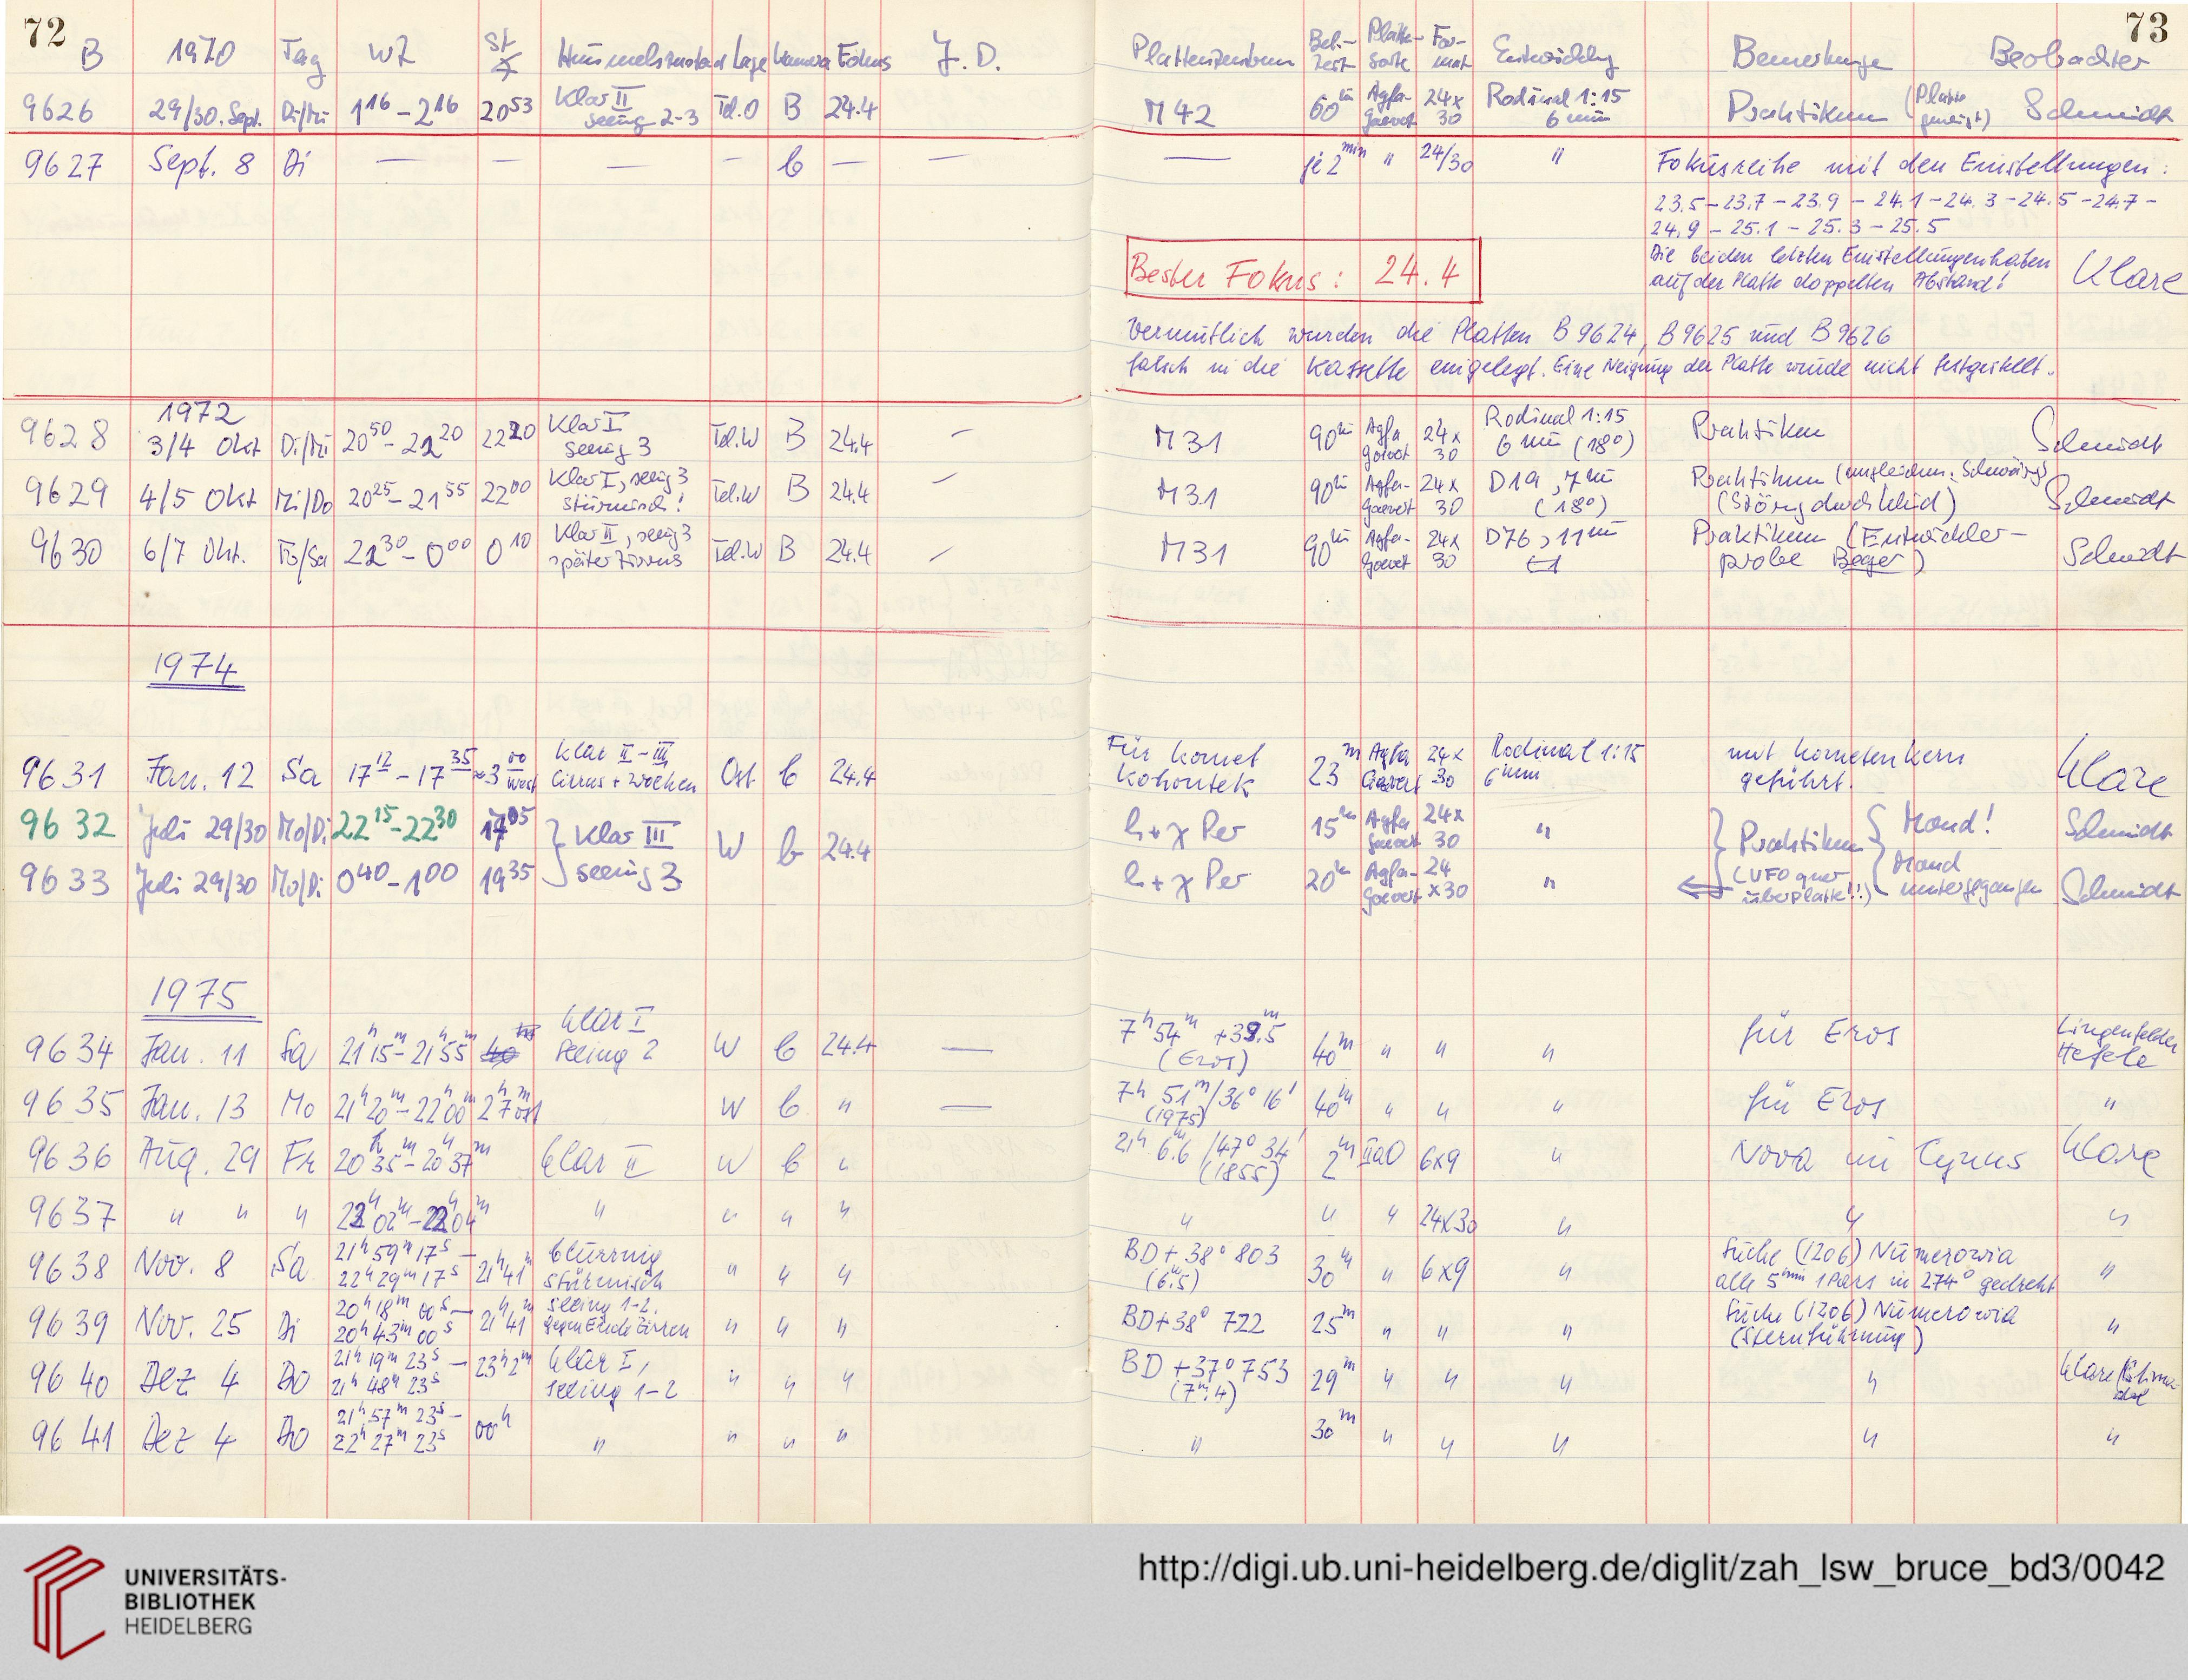 72
73
B 1970 Tag WZ St Himmelszustand Lage Kamera Fokus J.D. Plattenzentrum Bel.-zeit Platten-sorte For-mat Entwicklung Bemerkungen Beobachter
9626 29/30. Sept. Di/Mi 1 16 - 2 16 20 53 Klar II seeing 2-3 Td.O B 24.4 M 42 60 m Agfa-Gaevert 24x30 Rodinal 1:15 6 min Praktikum (Platte geneigt) Schmidt
9627 Sept. 8 Di — — — — b — — — je 2 min " 24/30 " Fokusreihe mit den Einstellungen:
23.5 - 23.7 - 23.9 - 24.1 - 24.3 - 24.5 - 24.7 -
24.9 - 25.1 - 25.3 - 25.5
Die beiden letzten Einstellungen haben
auf der Platte doppelten Abstand! Klare
Bester Fokus: 24.4
Vermutlich wurden die Platten B 9624, B 9625 und B 9626
falsch in die Kassette eingelegt. Eine Neigung der Platte wurde nicht festgestellt.
1972
9628 3/4 Okt Di/Mi 20 50 - 22 20 22 20 Klar I seeing 3 Td.W B 24.4 — M 31 90 m Agfa Gaevert 24x30 Rodinal 1:15 6 min (18°) Praktikum Schmidt
9629 4/5 Okt Mi/Do 20 25 - 21 55 22 00 Klar I, seeing 3 stürmisch! Td.W B 24.4 — M 31 90 m Agfa-Gaevert 24x30 D19, 7 m (18°) Praktikum Schmidt
9630 6/7 Okt. Fr/Sa 22 30 - 0 00 0 10 Klar II, seeing 3 später Zirrus Td.W B 24.4 — M 31 90 m Agfa-Gaevert 24x30 D76, 11 m Praktikum (Entwickler-probe Beger) Schmidt
1974
9631 Jan. 12 Sa 17 12 - 17 35 ≈3 00 west klar II - III Cirrus + Wolken Ost b 24.4 Für Komet Kohoutek 23 m Agfa Gaevert 24x30 Rodinal 1:15 6 min mit Kometenkern geführt. Klare
9632 Juli 29/30 Mo/Di 22 15 - 22 30 17 05 Klar III seeing 3 W b 24.4 h + χ Per 15 m Agfa Gaevert 24x30 " Praktikum Mond! Schmidt
9633 Juli 29/30 Mo/Di 0 40 - 1 00 19 35 h + χ Per 20 m Agfa-Gaevert 24x30 " (UFO quer über Platte!!) Mond untergegangen Schmidt
1975
9634 Jan. 11 Sa 21h 15m - 21h 55m klar I seeing 2 W b 24.4 — 7h 54m +39.5 (Eros) 40m " " " für Eros Lingenfelder Hefele
9635 Jan. 13 Mo 21h 20m - 22h 00m 2h 7m ost W b " — 7h 51m / 36° 16' (1975) 40m " " " für Eros "
9636 Aug. 29 Fr 20h 35m - 20h 37m klar II W b " 21h 6.6m / 47° 34' (1855) 2m IIaO 6x9 " Nova im Cygnus Klare
9637 " " " 22h 02m - 22h 04m " " " " " " " 24x30 " " "
9638 Nov. 8 Sa 21h 59m 17s - 22h 29m 17s 21h 41m stürmisch " " " BD + 38° 803 (6m.5) 30m " 6x9 " Suche (1206) Numerowia alle 5 min 1 Pars in 274° gedreht "
9639 Nov. 25 Di 20h 18m 00s - 20h 43m 00s 21h 41m seeing 1-2. gegen Ende Zirren " " " BD + 38° 722 25m " " " Suche (1206) Numerowia (Sternführung) "
9640 Dez 4 Do 21h 19m 23s - 21h 48m 23s 23h 2m klar I, seeing 1-2 " " " BD + 37° 753 (7m.4) 29m " " " " Klare
9641 Dez 4 Do 21h 57m 23s - 22h 27m 23s 00h " " " " " 30m " " " " "
UNIVERSITÄTS-
BIBLIOTHEK
HEIDELBERG
http://digi.ub.uni-heidelberg.de/diglit/zah_lsw_bruce_bd3/0042